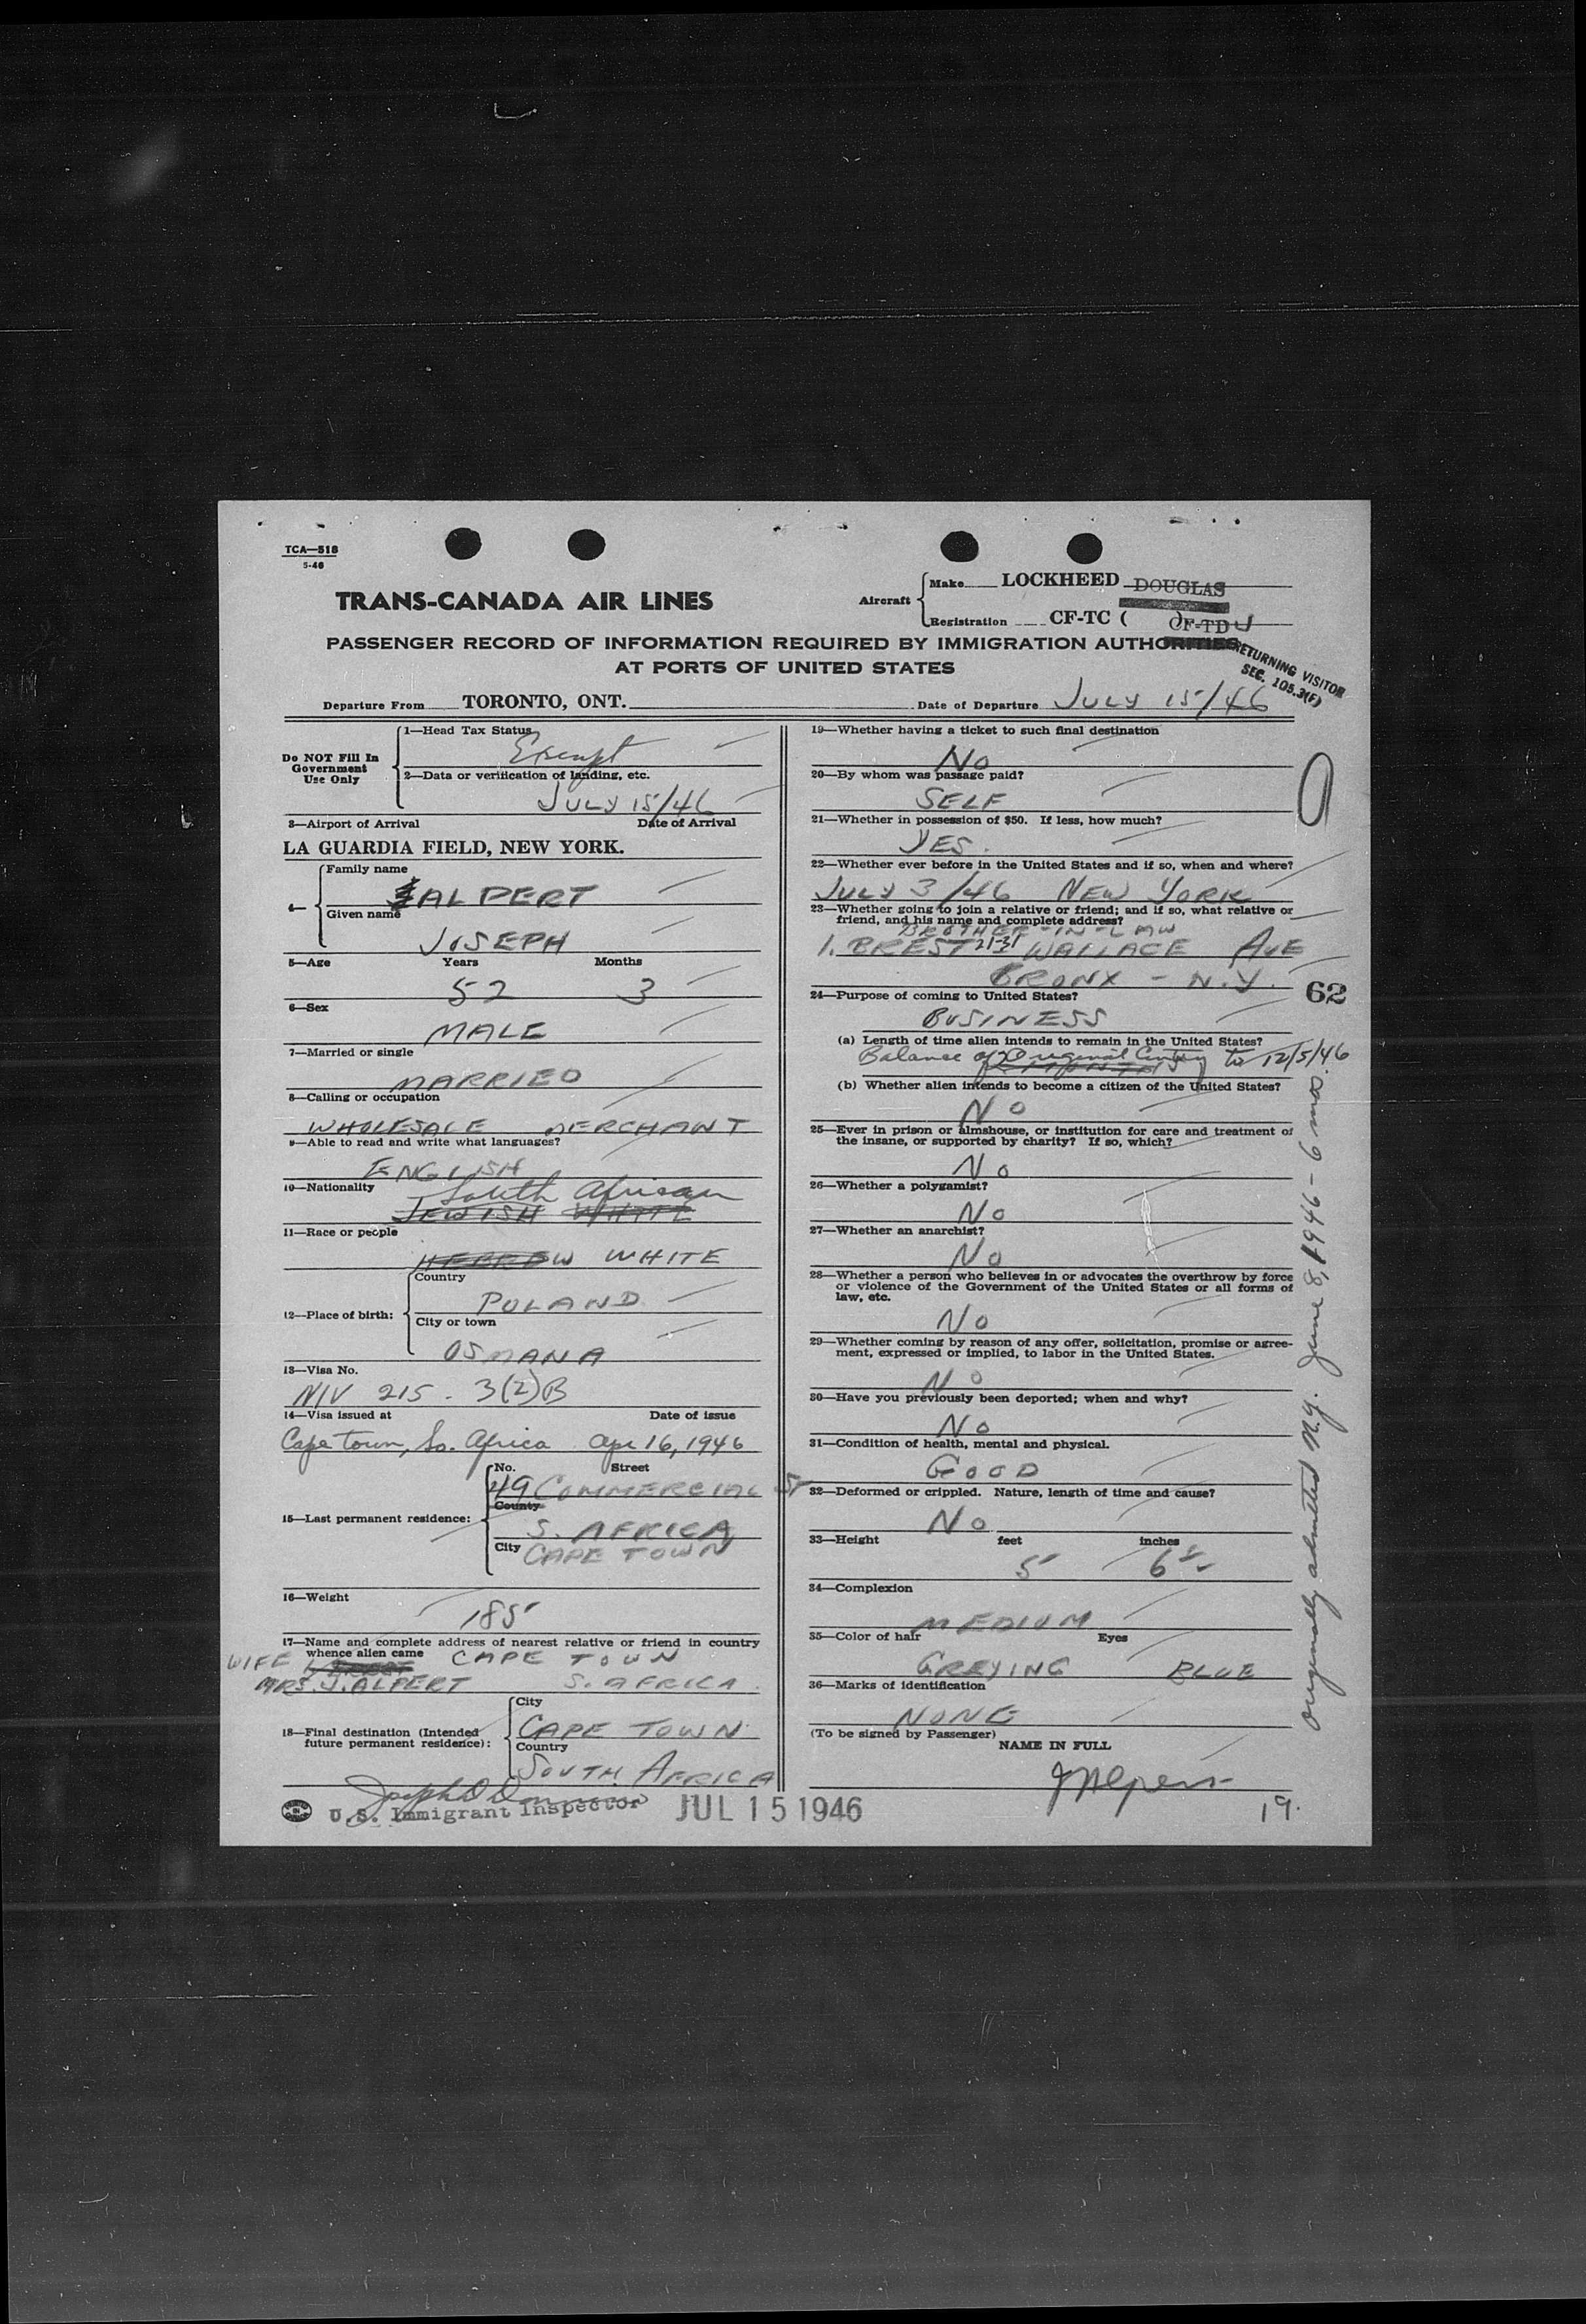 TCA—518
5-46
TRANS-CANADA AIR LINES
Aircraft
Make LOCKHEED DOUGLAS
Registration CF-TC ( ) CF-TD J
PASSENGER RECORD OF INFORMATION REQUIRED BY IMMIGRATION AUTHORITIES
AT PORTS OF UNITED STATES
RETURNING VISITOR
SEC. 105.3(F)
Departure From TORONTO, ONT. Date of Departure JULY 15/46
Do NOT Fill In
Government
Use Only
1—Head Tax Status
Exempt
2—Data or verification of landing, etc.
JULY 15/46
3—Airport of Arrival Date of Arrival
LA GUARDIA FIELD, NEW YORK.
4—
Family name
ALPERT
Given name
JOSEPH
5—Age Years Months
52 3
6—Sex
MALE
7—Married or single
MARRIED
8—Calling or occupation
WHOLESALE MERCHANT
9—Able to read and write what languages?
ENGLISH
10—Nationality
South African
JEWISH WHITE
11—Race or people
HEBREW WHITE
12—Place of birth:
Country
POLAND
City or town
OSMANA
13—Visa No.
NIV 215 - 3(2)B
14—Visa issued at Date of issue
Cape Town, So. Africa Apr 16, 1946
15—Last permanent residence:
No. Street
49 COMMERCIAL ST
County
S. AFRICA
City CAPE TOWN
16—Weight
185
17—Name and complete address of nearest relative or friend in country
whence alien came CAPE TOWN
WIFE
MRS. J. ALPERT S. AFRICA
18—Final destination (Intended
future permanent residence):
City
CAPE TOWN
Country
SOUTH AFRICA
U.S. Immigrant Inspector JUL 15 1946
19—Whether having a ticket to such final destination
No
20—By whom was passage paid?
SELF
21—Whether in possession of $50. If less, how much?
YES.
22—Whether ever before in the United States and if so, when and where?
JULY 3/46 NEW YORK
23—Whether going to join a relative or friend; and if so, what relative or
friend, and his name and complete address?
BROTHER-IN-LAW
I. BREST 2131 WALLACE AVE
BRONX - N.Y.
62
24—Purpose of coming to United States?
BUSINESS
(a) Length of time alien intends to remain in the United States?
Balance of Original Entry to 12/5/46
(b) Whether alien intends to become a citizen of the United States?
No
25—Ever in prison or almshouse, or institution for care and treatment of
the insane, or supported by charity? If so, which?
No
26—Whether a polygamist?
No
27—Whether an anarchist?
No
28—Whether a person who believes in or advocates the overthrow by force
or violence of the Government of the United States or all forms of
law, etc.
No
29—Whether coming by reason of any offer, solicitation, promise or agree-
ment, expressed or implied, to labor in the United States.
No
30—Have you previously been deported; when and why?
No
31—Condition of health, mental and physical.
GOOD
32—Deformed or crippled. Nature, length of time and cause?
No
33—Height feet inches
5 6½
34—Complexion
MEDIUM
35—Color of hair Eyes
GREYING BLUE
36—Marks of identification
NONE
(To be signed by Passenger)
NAME IN FULL
J Alpert
19.
originally admitted N.Y. June 8, 1946 - 6 mos.